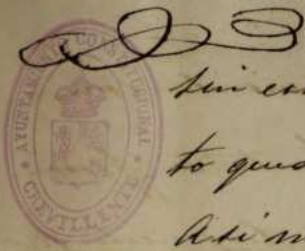 AYUNTAMIENTO CONSTITUCIONAL
CREVILLENTE
sin
to qued
Asi